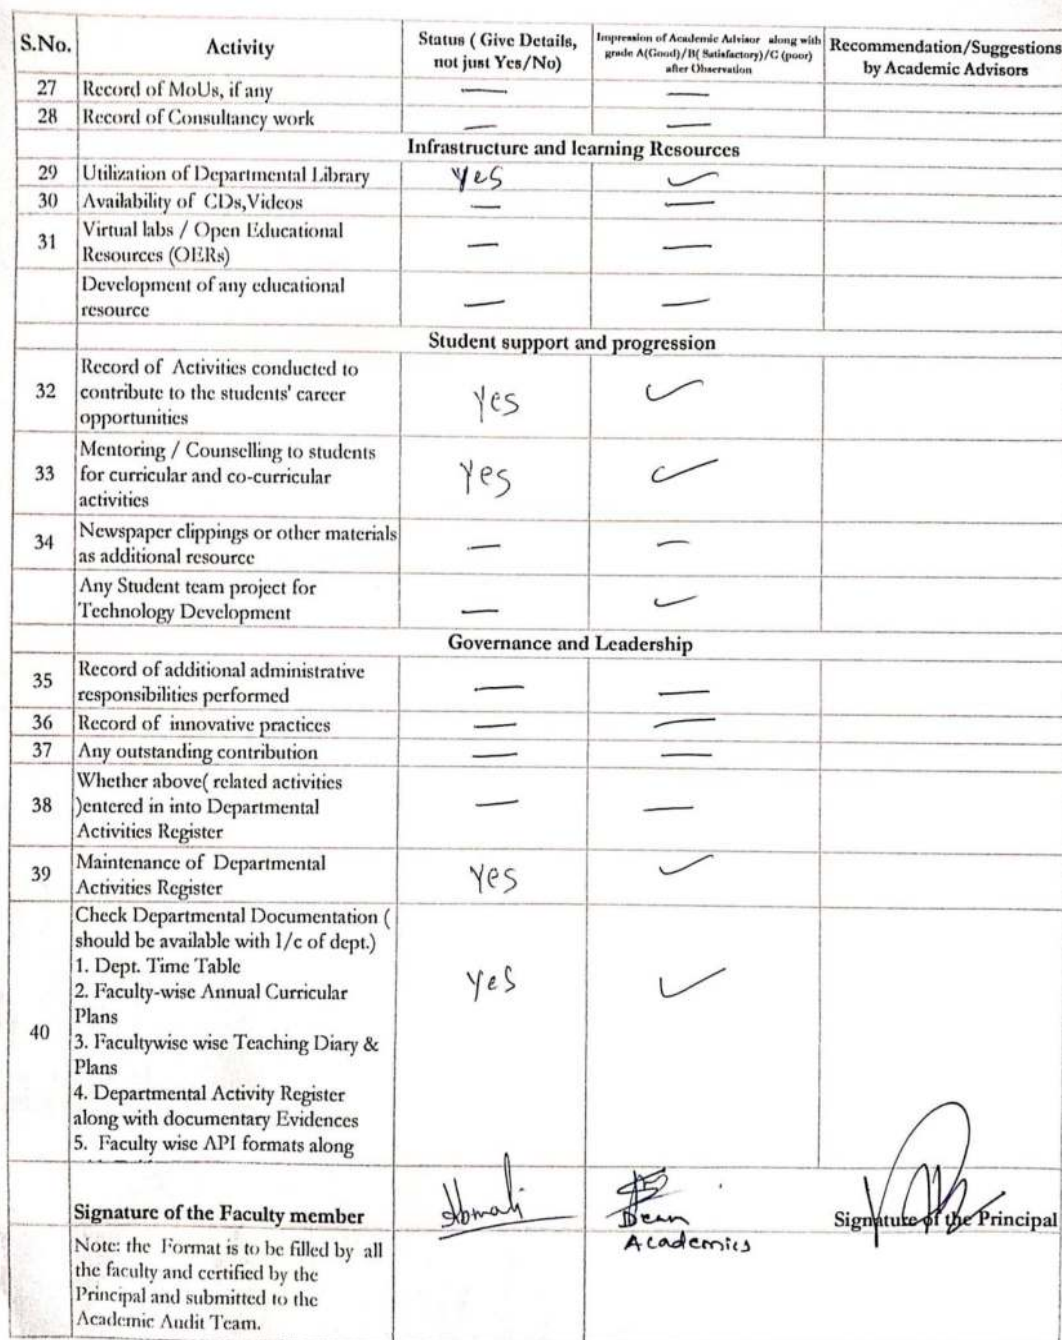 S.No.
Activity
Status ( Give Details,
not just Yes/No)
Impression of Academic Advisor along with
grade A(Good)/B( Satisfactory)/C (poor)
after Observation
Recommendation/Suggestions
by Academic Advisors
27 Record of MoUs, if any — —
28 Record of Consultancy work — —
Infrastructure and learning Resources
29 Utilization of Departmental Library Yes ✓
30 Availability of CDs,Videos — —
31 Virtual labs / Open Educational
Resources (OERs) — —
Development of any educational
resource — —
Student support and progression
32 Record of Activities conducted to
contribute to the students' career
opportunities Yes ✓
33 Mentoring / Counselling to students
for curricular and co-curricular
activities Yes ✓
34 Newspaper clippings or other materials
as additional resource — —
Any Student team project for
Technology Development — ✓
Governance and Leadership
35 Record of additional administrative
responsibilities performed — —
36 Record of innovative practices — —
37 Any outstanding contribution — —
38 Whether above( related activities
)entered in into Departmental
Activities Register — —
39 Maintenance of Departmental
Activities Register Yes ✓
40 Check Departmental Documentation (
should be available with I/c of dept.)
1. Dept. Time Table
2. Faculty-wise Annual Curricular
Plans
Yes ✓
3. Facultywise wise Teaching Diary &
Plans
4. Departmental Activity Register
along with documentary Evidences
5. Faculty wise API formats along
Signature of the Faculty member
Dean
Academics
Signature of the Principal
Note: the Format is to be filled by all
the faculty and certified by the
Principal and submitted to the
Academic Audit Team.